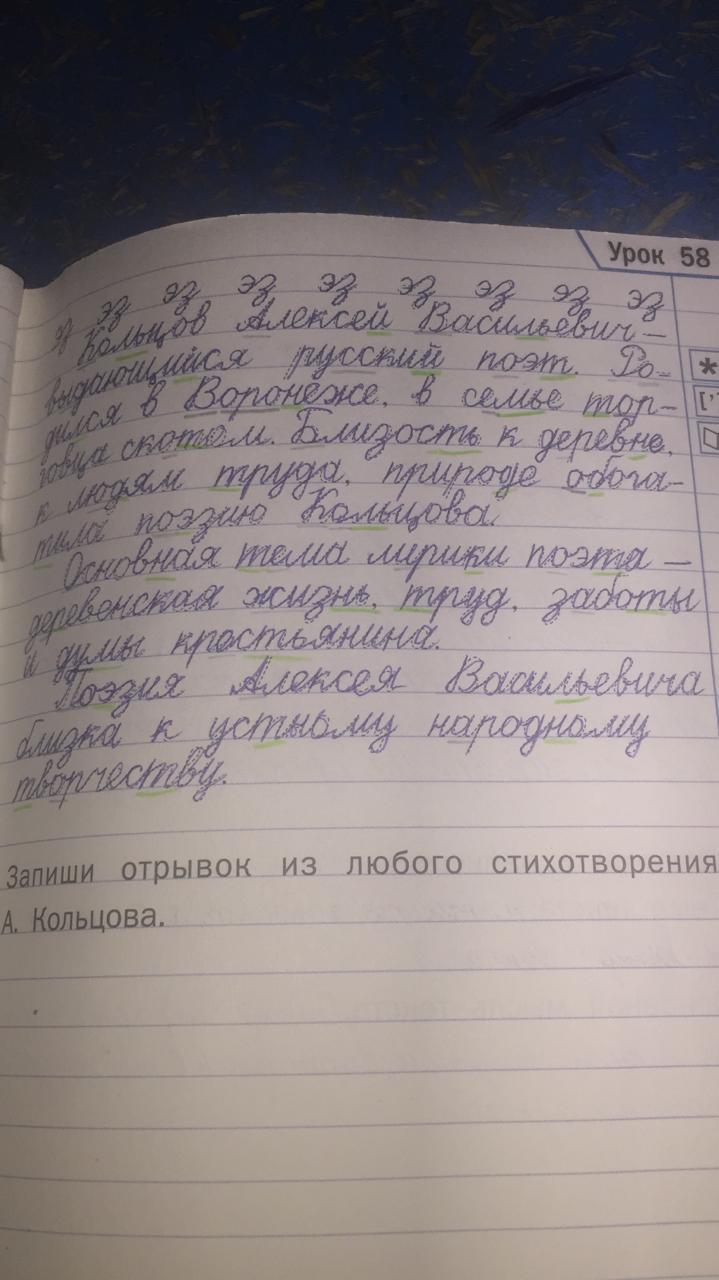 Урок 58
эз эз эз эз эз эз эз эз эз
Кольцов Алексей Васильевич –
выдающийся русский поэт. Ро-
дился в Воронеже, в семье тор-
говца скотом. Близость к деревне,
к людям труда, природе обога-
тила поэзию Кольцова.
Основная тема лирики поэта –
деревенская жизнь, труд, заботы
и думы крестьянина.
Поэзия Алексея Васильевича
близка к устному народному
творчеству.
Запиши отрывок из любого стихотворения
А. Кольцова.